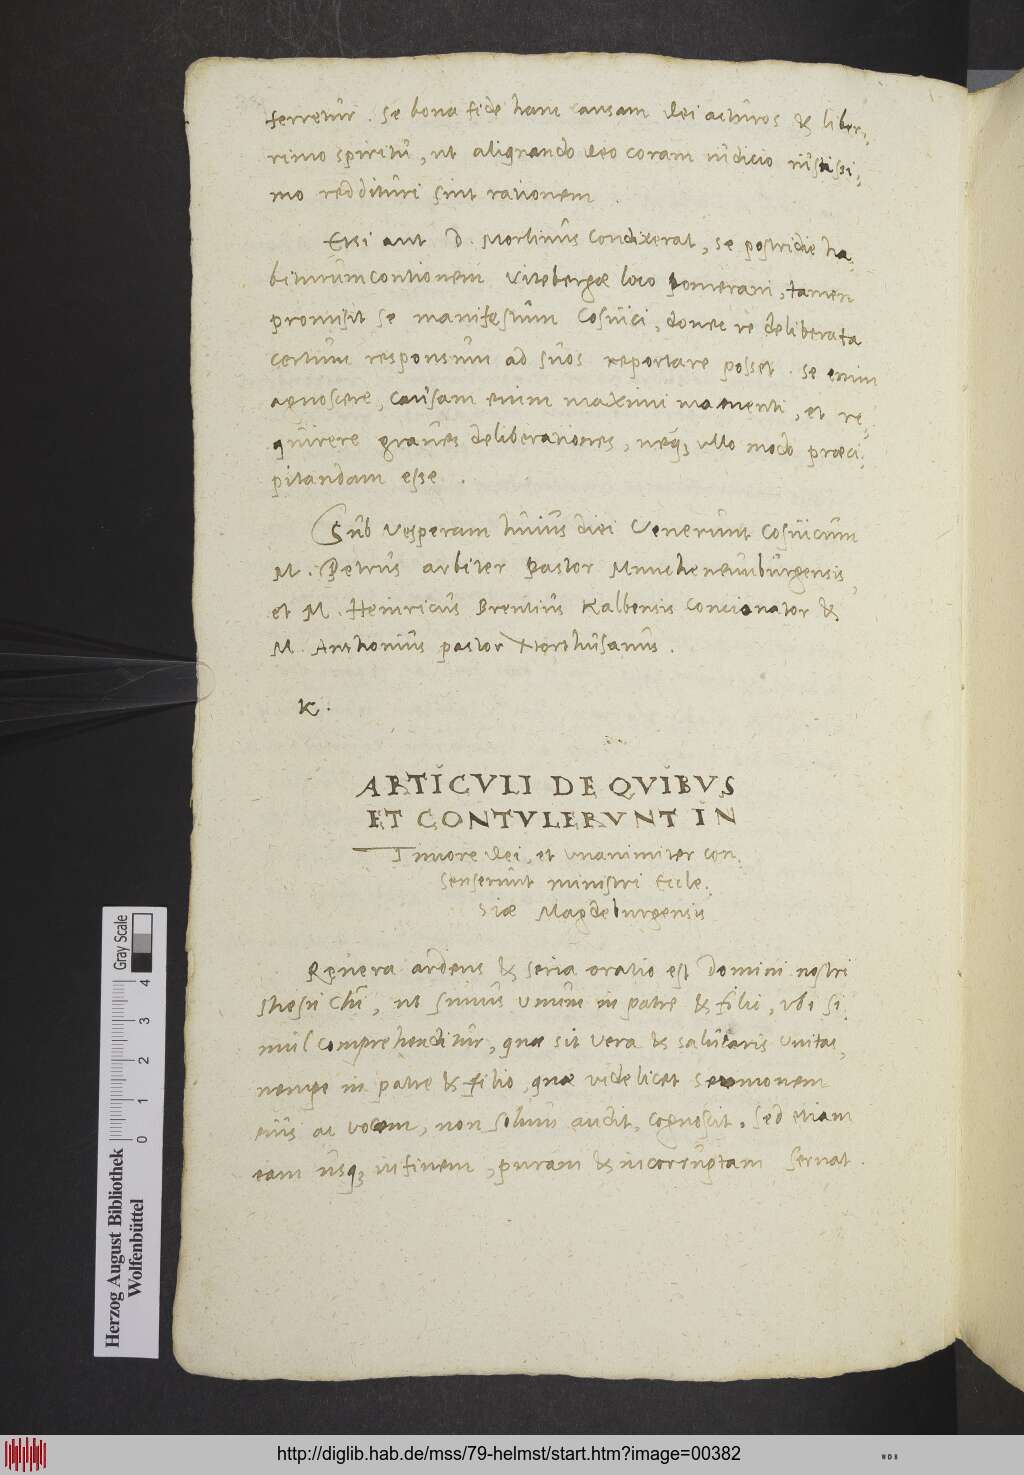 ferretur. Se bona fide hanc causam Dei acturos & liber-
rimo spiritu, ut aliquando Deo coram iudicio iustissi-
mo reddituri sint rationem.
Etsi aut D. Morlinus condixerat, se postridie ha-
biturum contionem Vitebergæ loco pomerani, tamen
promisit se mansurum Cosuici, donec re deliberata
certum responsum ad suos reportare posset. Se enim
agnoscere, causam enim maximi momenti, et re-
quirere graues deliberationes, neq; ullo modo præci-
pitandam esse.
Sub Vesperam huius diei Venerunt Cosuicum
M. Petrus arbiter Pastor
et M. Heinricus Brentius Kalbensis Concionator &
M. Anthonius pastor Northusanus.
K.
ARTICVLI DE QVIBVS
ET CONTVLERVNT IN
Timore Dei, et unanimiter con-
senserunt ministri Eccle-
siæ Magdeburgensis
Reuera ardens & seria oratio est Domini nostri
Ihesu Chri, ut simus unum in patre & filio, ubi si-
mul comprehenditur, quæ sit vera & salutaris unitas,
nempe in patre & filio, quæ videlicet sermonem
eius ac vocem, non solum audit, cognoscit, sed etiam
eam usq; in finem, puram & incorruptam seruat.
Herzog August Bibliothek
Wolfenbüttel
0 1 2 3 4
Gray Scale
http://diglib.hab.de/mss/79-helmst/start.htm?image=00382
WDB